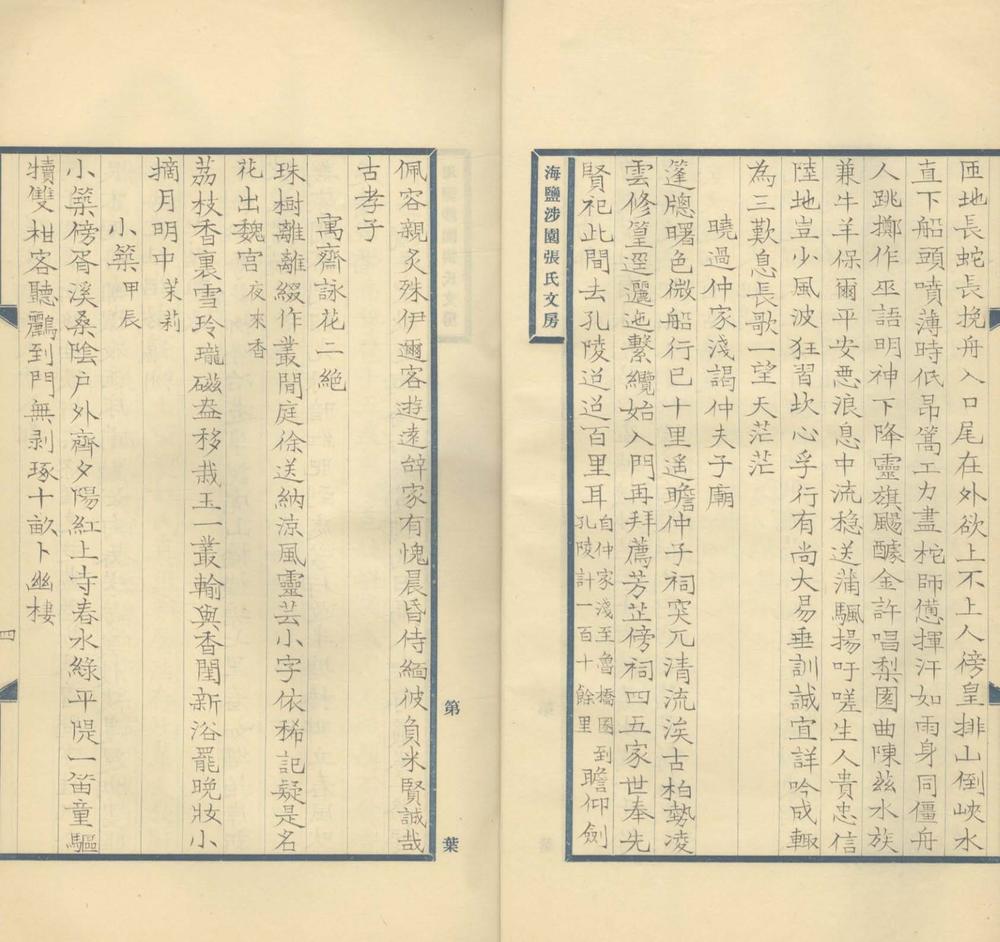 匝地長蛇長挽舟入口尾在外欲上不上人傍皇排山倒峽水
直下船頭噴薄時低昂篙工力盡柁師憊揮汗如雨身同僵舟
人跳擲作巫語明神下降靈旗颺醵金許唱梨園曲陳茲水族
兼牛羊保爾平安惡浪息中流穩送蒲颿揚吁嗟生人貴忠信
陸地豈少風波狂習坎心孚行有尚大易垂訓誠宜詳吟成輙
為三歎息長歌一望天茫茫
曉過仲家淺謁仲夫子廟
篷牕曙色微船行已十里遥瞻仲子祠突兀清流涘古柏勢凌
雲修篁逕邐迤繫纜始入門再拜薦芳芷傍祠四五家世奉先
賢祀此間去孔陵迢迢百里耳自仲家淺至魯橋圈到孔陵計一百十餘里瞻仰劍
海鹽涉園張氏文房
佩容親炙殊伊邇客遊遠辭家有愧晨昏侍緬彼負米賢誠哉
古孝子
寓齋詠花二絶
珠樹離離綴作叢閒庭徐送納涼風靈芸小字依稀記疑是名
花出魏宮夜來香
荔枝香裏雪玲瓏磁盎移栽玉一叢輸與香閨新浴罷晚妝小
摘月明中茉莉
小築甲辰
小築傍胥溪桑陰户外齊夕陽紅上寺春水綠平隄一笛童驅
犢雙柑客聽鸝到門無剥琢十畝卜幽棲
第
葉
四